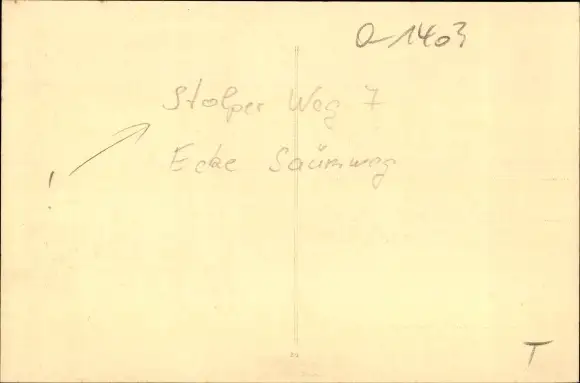 O-1403
Stolper Weg 7
Ecke Saümweg
!
T